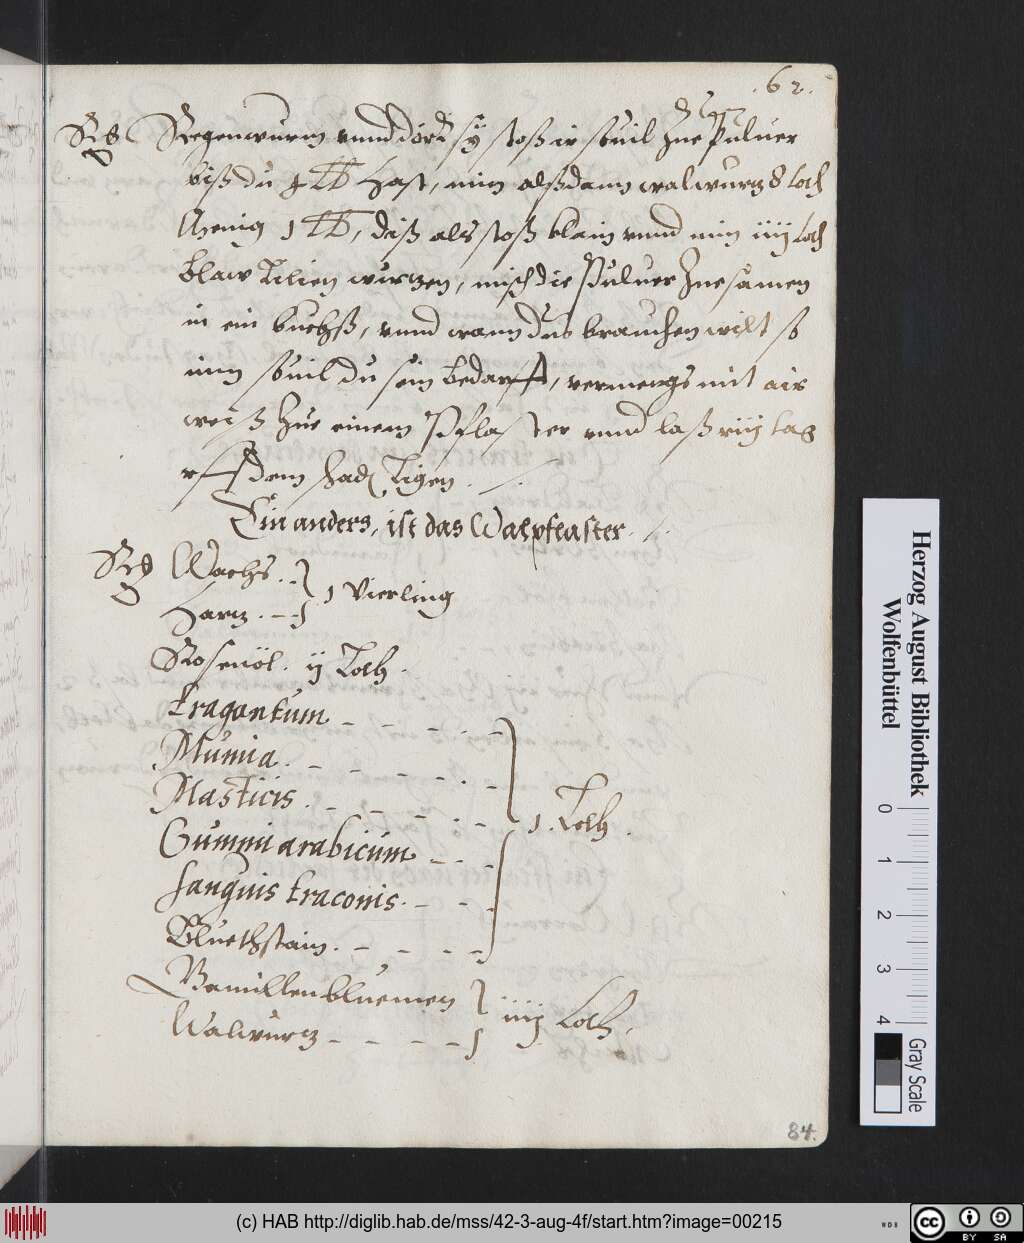 62.
Regenwurm unnd dörr sy stoß ir souil zue Puluer
biß du 4 lb hast, nim alßdann walwurz 8 Loth
Honig 1 lb, diß als stoß klain unnd nim iiij Loth
blaw Lilien wurzen, misch die Puluer zuesamen
in ein buchß, unnd wann dus brauchen wilt so
nim souil du sein bedarfft, vermengs mit air
weiß zue einem Pflaster unnd laß viij tag
uff dem schad Ligen.
Ein anders, ist das Walpflaster.
Wachs.
Harz.
1 Vierling
Rosenöl. ij Loth.
tragantum
Mumia.
Masticis.
1. Loth.
Gummi arabicum
sanguis traconis.
Bluethstain.
Bamillenbluemen
iiij Loth.
Walwurz
84.
Herzog August Bibliothek
Wolfenbüttel
0 1 2 3 4
Gray Scale
(c) HAB http://diglib.hab.de/mss/42-3-aug-4f/start.htm?image=00215
WDB
cc
BY SA